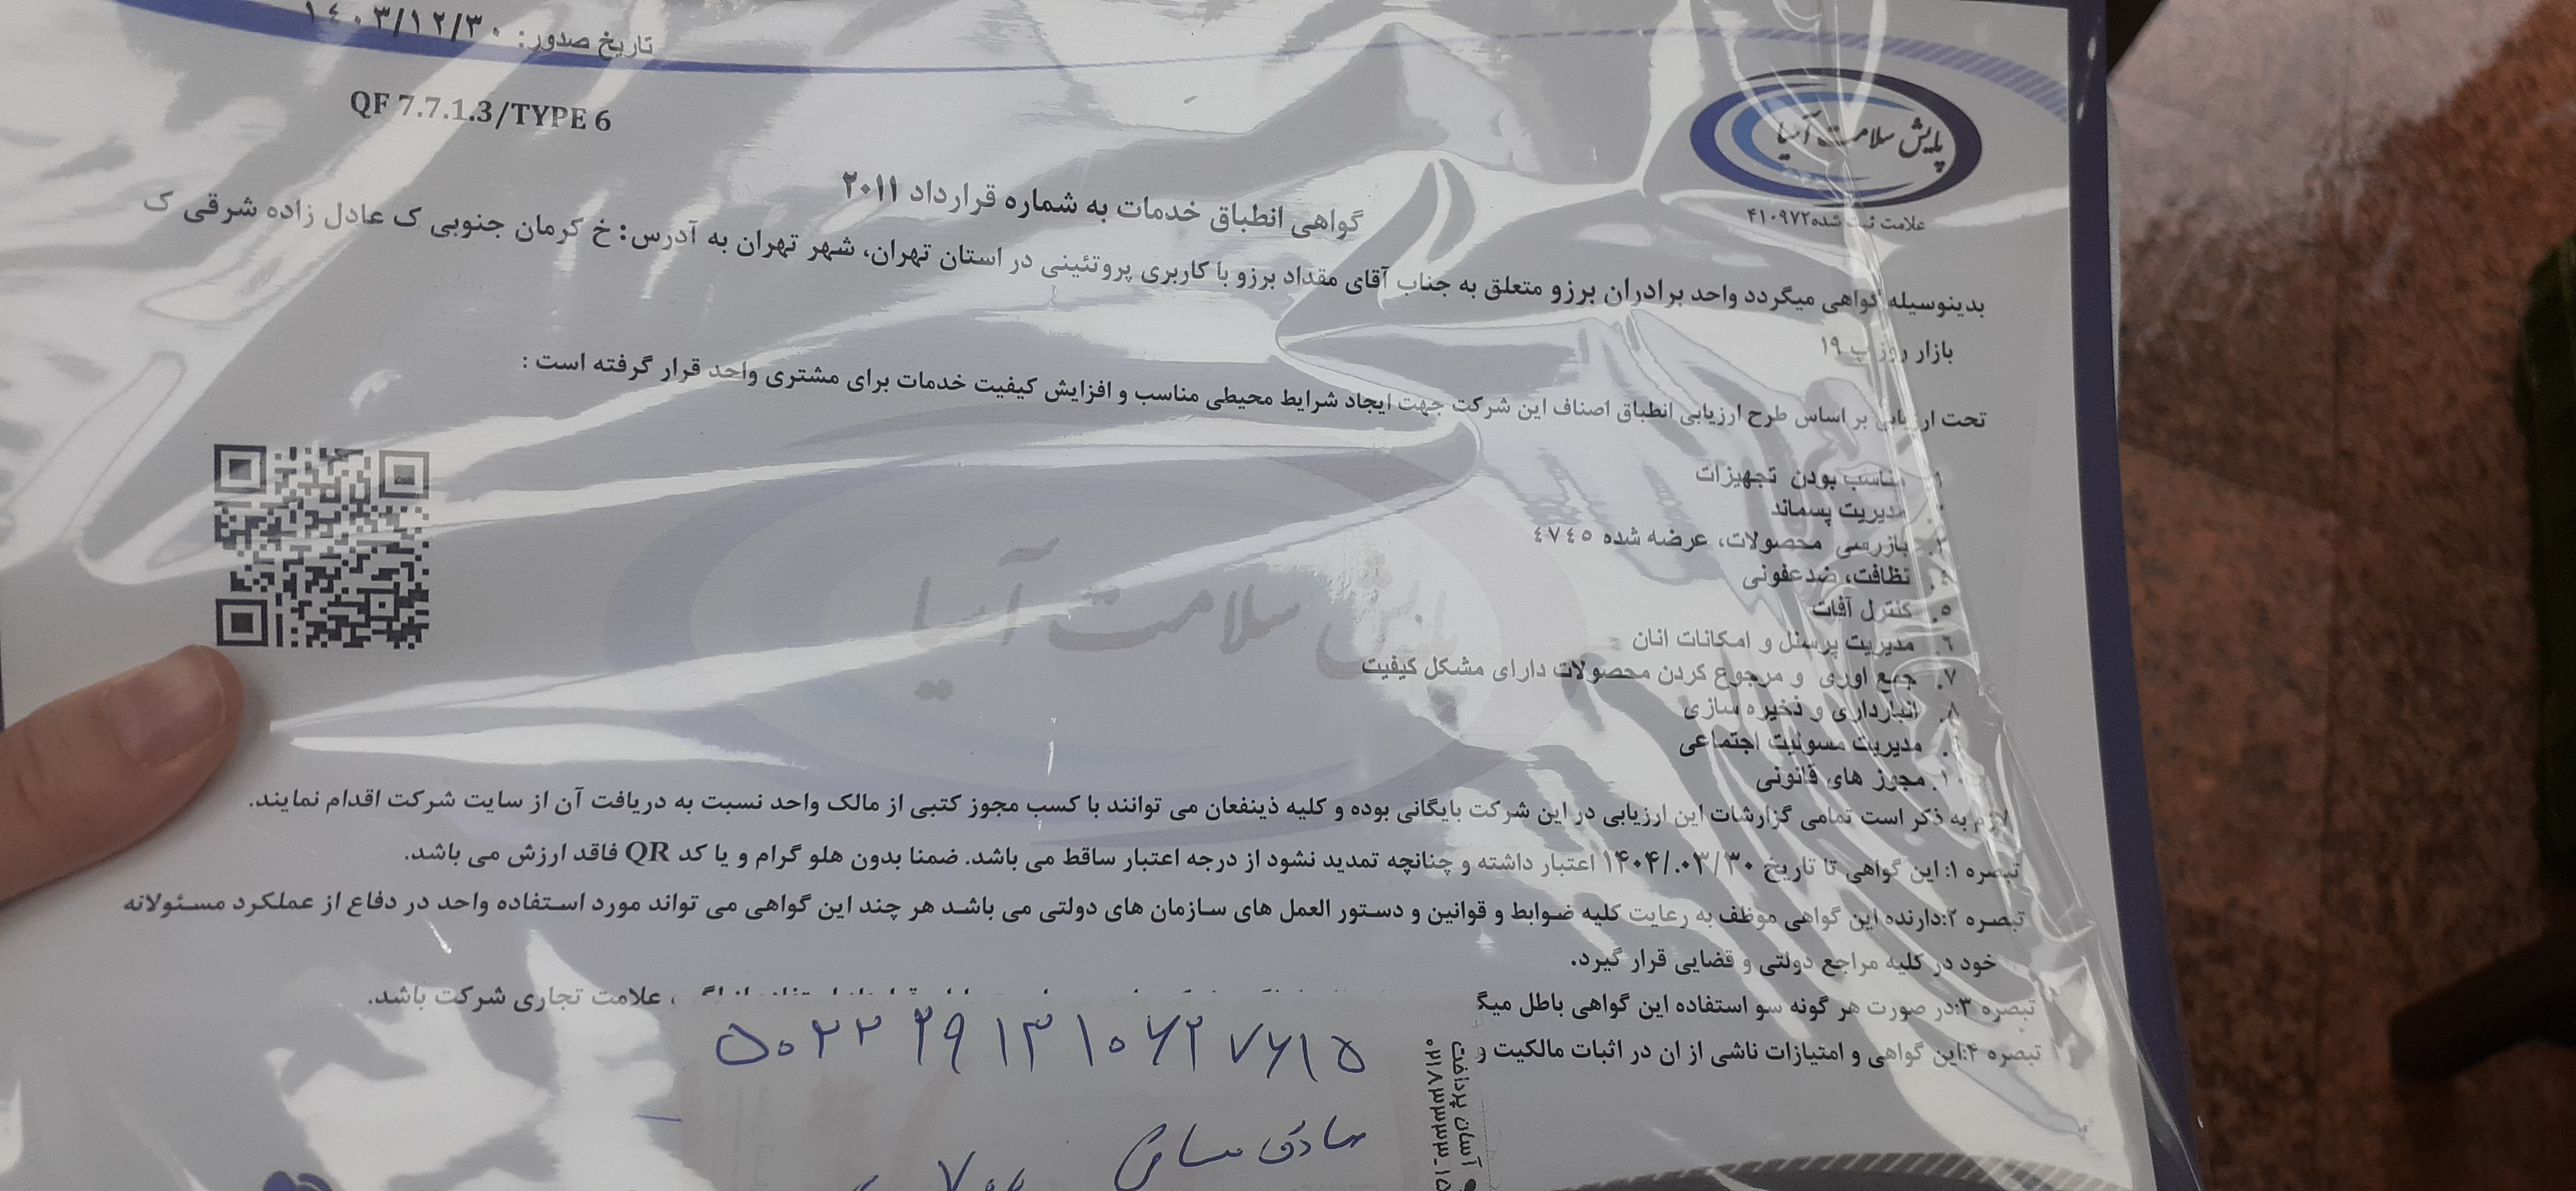 تاریخ صدور: ۱۴۰۳/۱۲/۳۰
QF 7.7.1.3/TYPE 6
پایش سلامت آسیا
علامت ثبت شده ۴۱۰۹۷۲
گواهی انطباق خدمات به شماره قرارداد ۲۰۱۱
بدینوسیله گواهی میگردد واحد برادران برزو متعلق به جناب آقای مقداد برزو با کاربری پروتئینی در استان تهران، شهر تهران به آدرس: خ کرمان جنوبی ک عادل زاده شرقی ک
بازار روز پ ۱۹
تحت ارزیابی بر اساس طرح ارزیابی انطباق اصناف این شرکت جهت ایجاد شرایط محیطی مناسب و افزایش کیفیت خدمات برای مشتری واحد قرار گرفته است :
۱. مناسب بودن تجهیزات
مدیریت پسماند
بازرسی محصولات، عرضه شده ٤٧٤٥
٤. نظافت، ضدعفونی
٥. کنترل آفات
٦. مدیریت پرسنل و امکانات انان
٧. جمع اوری و مرجوع کردن محصولات دارای مشکل کیفیت
٨. انبارداری و ذخیره سازی
مدیریت مسولیت اجتماعی
۱۰. مجوز های قانونی
لازم به ذکر است تمامی گزارشات این ارزیابی در این شرکت بایگانی بوده و کلیه ذینفعان می توانند با کسب مجوز کتبی از مالک واحد نسبت به دریافت آن از سایت شرکت اقدام نمایند.
تبصره ۱: این گواهی تا تاریخ ۱۴۰۴/.۰۳/۳۰ اعتبار داشته و چنانچه تمدید نشود از درجه اعتبار ساقط می باشد. ضمنا بدون هلو گرام و یا کد QR فاقد ارزش می باشد.
تبصره ۲:دارنده این گواهی موظف به رعایت کلیه ضوابط و قوانین و دستور العمل های سازمان های دولتی می باشد هر چند این گواهی می تواند مورد استفاده واحد در دفاع از عملکرد مسئولانه
خود در کلیه مراجع دولتی و قضایی قرار گیرد.
تبصره ۳:در صورت هر گونه سو استفاده این گواهی باطل میگ
، علامت تجاری شرکت باشد.
تبصره ۴:این گواهی و امتیازات ناشی از ان در اثبات مالکیت و
۵۰۲۲ ۲۹۱۳ ۱۰۶۲ ۷۶۱۵
صادق
آسان پرداخت
۰۲۱۸۳۳۳۳-۱۵
پایش سلامت آسیا